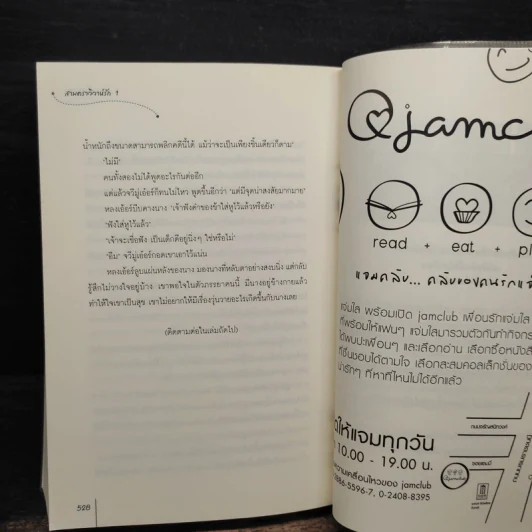 สามชะตาวิวาห์รัก 1
น้ำหนักถึงขนาดสามารถพลิกคดีนี้ได้ แม้ว่าจะเป็นเพียงชิ้นเดียวก็ตาม'
'ไม่มี'
คนทั้งสองไม่ได้พูดอะไรกันต่ออีก
แต่แล้วจวีมู่เอ๋อร์ก็ทนไม่ไหว พูดขึ้นอีกว่า 'แต่มีจุดน่าสงสัยมากมาย'
หลงเอ้อร์บีบคางนาง 'เจ้าฟังคำของข้าใส่หูไว้แล้วหรือยัง'
'ฟังใส่หูไว้แล้ว'
'เจ้าจะเชื่อฟัง เป็นเด็กดีอยู่นิ่งๆ ใช่หรือไม่'
'อืม' จวีมู่เอ๋อร์กอดเขาเอาไว้แน่น
หลงเอ้อร์ลูบแผ่นหลังของนาง มองนางที่หลับตาอย่างสงบนิ่ง แต่กลับ
รู้สึกไม่วางใจอยู่บ้าง เขาพอใจในตัวภรรยาคนนี้ มีนางอยู่ข้างกายแล้ว
ทำให้ใจเขาเป็นสุข เขาไม่อยากให้มีเรื่องวุ่นวายอะไรเกิดขึ้นกับนางเลย
(ติดตามต่อในเล่มถัดไป)
528
jamclu
read + eat + pl
แจมคลับ... คลับของคนรักแจ่
แจ่มใส พร้อมเปิด jamclub เพื่อนรักแจ่มใส
ที่พร้อมให้แฟนๆ แจ่มใสมารวมตัวกันทำกิจกร
ได้พบปะเพื่อนๆ และเลือกอ่าน เลือกซื้อหนังสื
ที่ชื่นชอบได้ตามใจ เลือกสะสมคอลเล็กชั่นของ
น่ารักๆ ที่หาที่ไหนไม่ได้อีกแล้ว
ให้แจมทุกวัน
10.00 - 19.00 น.
ความเคลื่อนไหวของ jamclub
0886-5596-7, 0-2408-8395
ถนนจรัญสนิทวงศ์